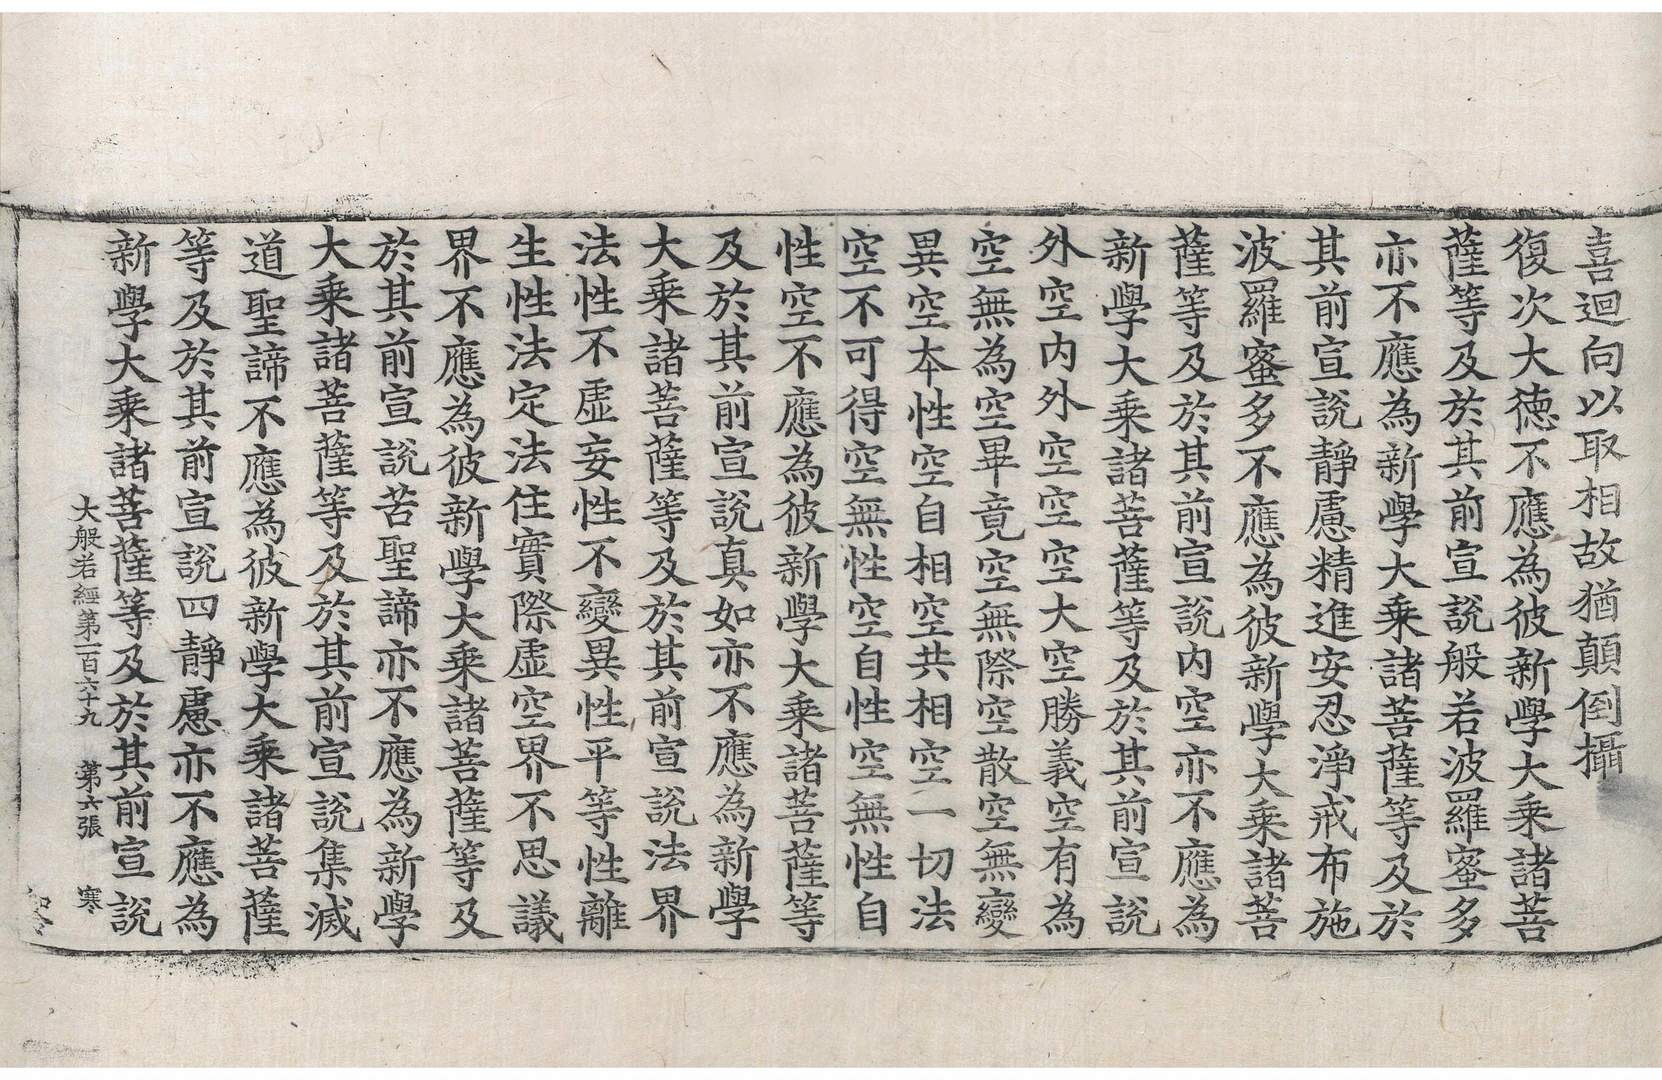 喜迴向以取相故猶顛倒攝
復次大德不應為彼新學大乘諸菩
薩等及於其前宣說般若波羅蜜多
亦不應為新學大乘諸菩薩等及於
其前宣說靜慮精進安忍淨戒布施
波羅蜜多不應為彼新學大乘諸菩
薩等及於其前宣說内空亦不應為
新學大乘諸菩薩等及於其前宣說
外空内外空空空大空勝義空有為
空無為空畢竟空無際空散空無變
異空本性空自相空共相空一切法
空不可得空無性空自性空無性自
性空不應為彼新學大乘諸菩薩等
及於其前宣說真如亦不應為新學
大乘諸菩薩等及於其前宣說法界
法性不虛妄性不變異性平等性離
生性法定法住實際虛空界不思議
界不應為彼新學大乘諸菩薩等及
於其前宣說苦聖諦亦不應為新學
大乘諸菩薩等及於其前宣說集滅
道聖諦不應為彼新學大乘諸菩薩
等及於其前宣說四靜慮亦不應為
新學大乘諸菩薩等及於其前宣說
大般若經第一百六十九 第六張 寒